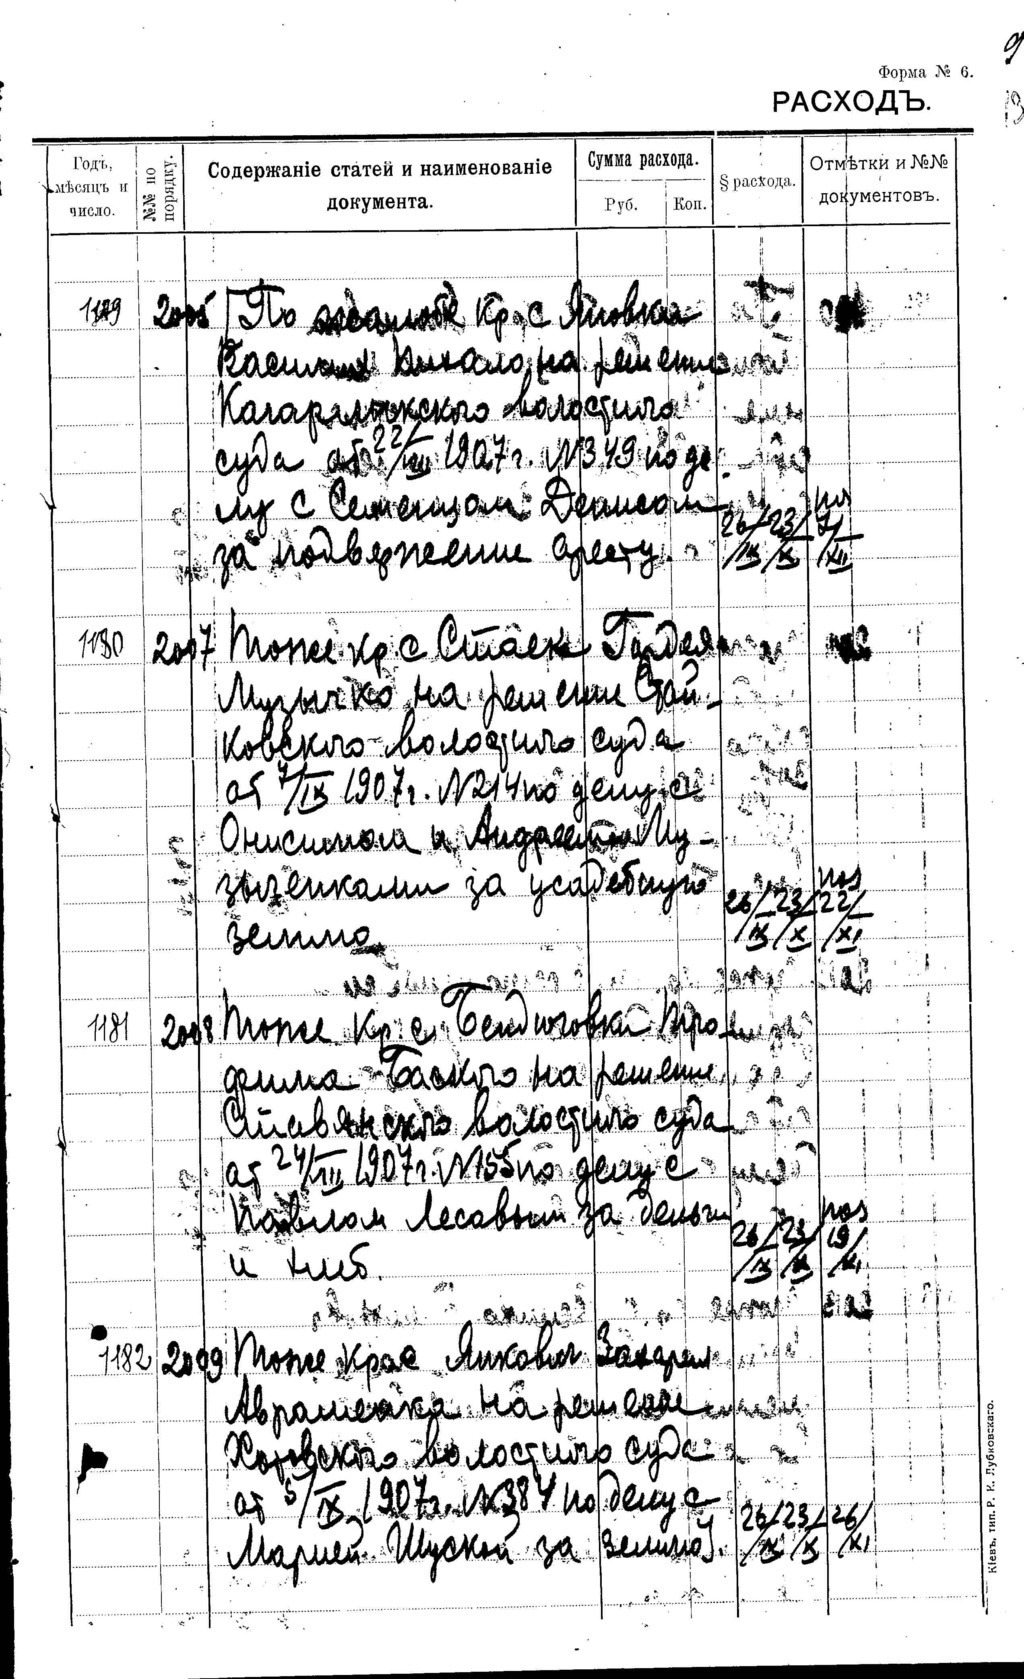 Форма № 6.
РАСХОДЪ.
Годъ, мѣсяцъ и число.
№№ по порядку.
Содержаніе статей и наименованіе документа.
Сумма расхода.
Руб.
Коп.
§ расхода.
Отмѣтки и №№ документовъ.
2005 По жалобѣ кр. с
на решение
волостного
суда от 22/VIII 1907 г. N 349 по де
лу с Семенцом Денисом
за подвержение аресту.
26/IX 23/X 7/XII
1180 2007 Тоже кр с Стаек Гордея
Музычко на решение Стай-
ковского волостного суда
от 7/IX 1907 г. N 214 по делу с
Онисимом и Андреем Му-
зыченками за усадебную
землю
26/IX 23/X 22/XI
1181 2008 Тоже кр с. Бендюговки Тро-
фима Баского на решение
Ставянского волостного суда
от 24/VIII 1907 г. N 155 по делу с
Павлом Лесовым за деньги
и хлеб.
26/IX 23/X 19/XI
1182 2009 Тоже кр с Янкович Захария
Авраменка на решение
Хотовского волостного суда
от 5/IX 1907 г. N 384 по делу с
Марией Шуской за землю.
26/IX 23/X 26/XI
Кіевъ, тип. Р. К. Лубковскаго.